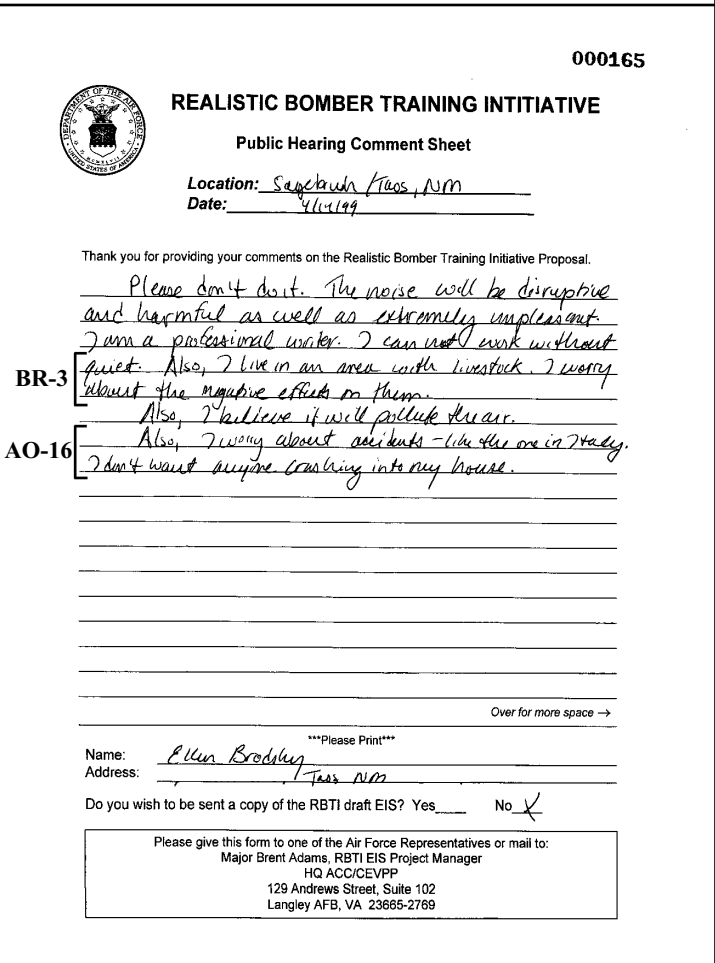 000165
DEPARTMENT OF THE AIR FORCE
MCMXLVII
UNITED STATES OF AMERICA
REALISTIC BOMBER TRAINING INTITIATIVE
Public Hearing Comment Sheet
Location: Sagebrush / Taos, NM
Date: 4/14/99
Thank you for providing your comments on the Realistic Bomber Training Initiative Proposal.
Please don't do it. The noise will be disruptive
and harmful as well as extremely unpleasant.
I am a professional writer. I can not work without
BR-3 quiet. Also, I live in an area with livestock. I worry
about the negative effects on them.
Also, I believe it will pollute the air.
AO-16 Also, I worry about accidents - like the one in Italy.
I don't want anyone crashing into my house.
Over for more space →
***Please Print***
Name: Ellen Brodsky
Address: / Taos NM
Do you wish to be sent a copy of the RBTI draft EIS? Yes____ No X
Please give this form to one of the Air Force Representatives or mail to:
Major Brent Adams, RBTI EIS Project Manager
HQ ACC/CEVPP
129 Andrews Street, Suite 102
Langley AFB, VA 23665-2769